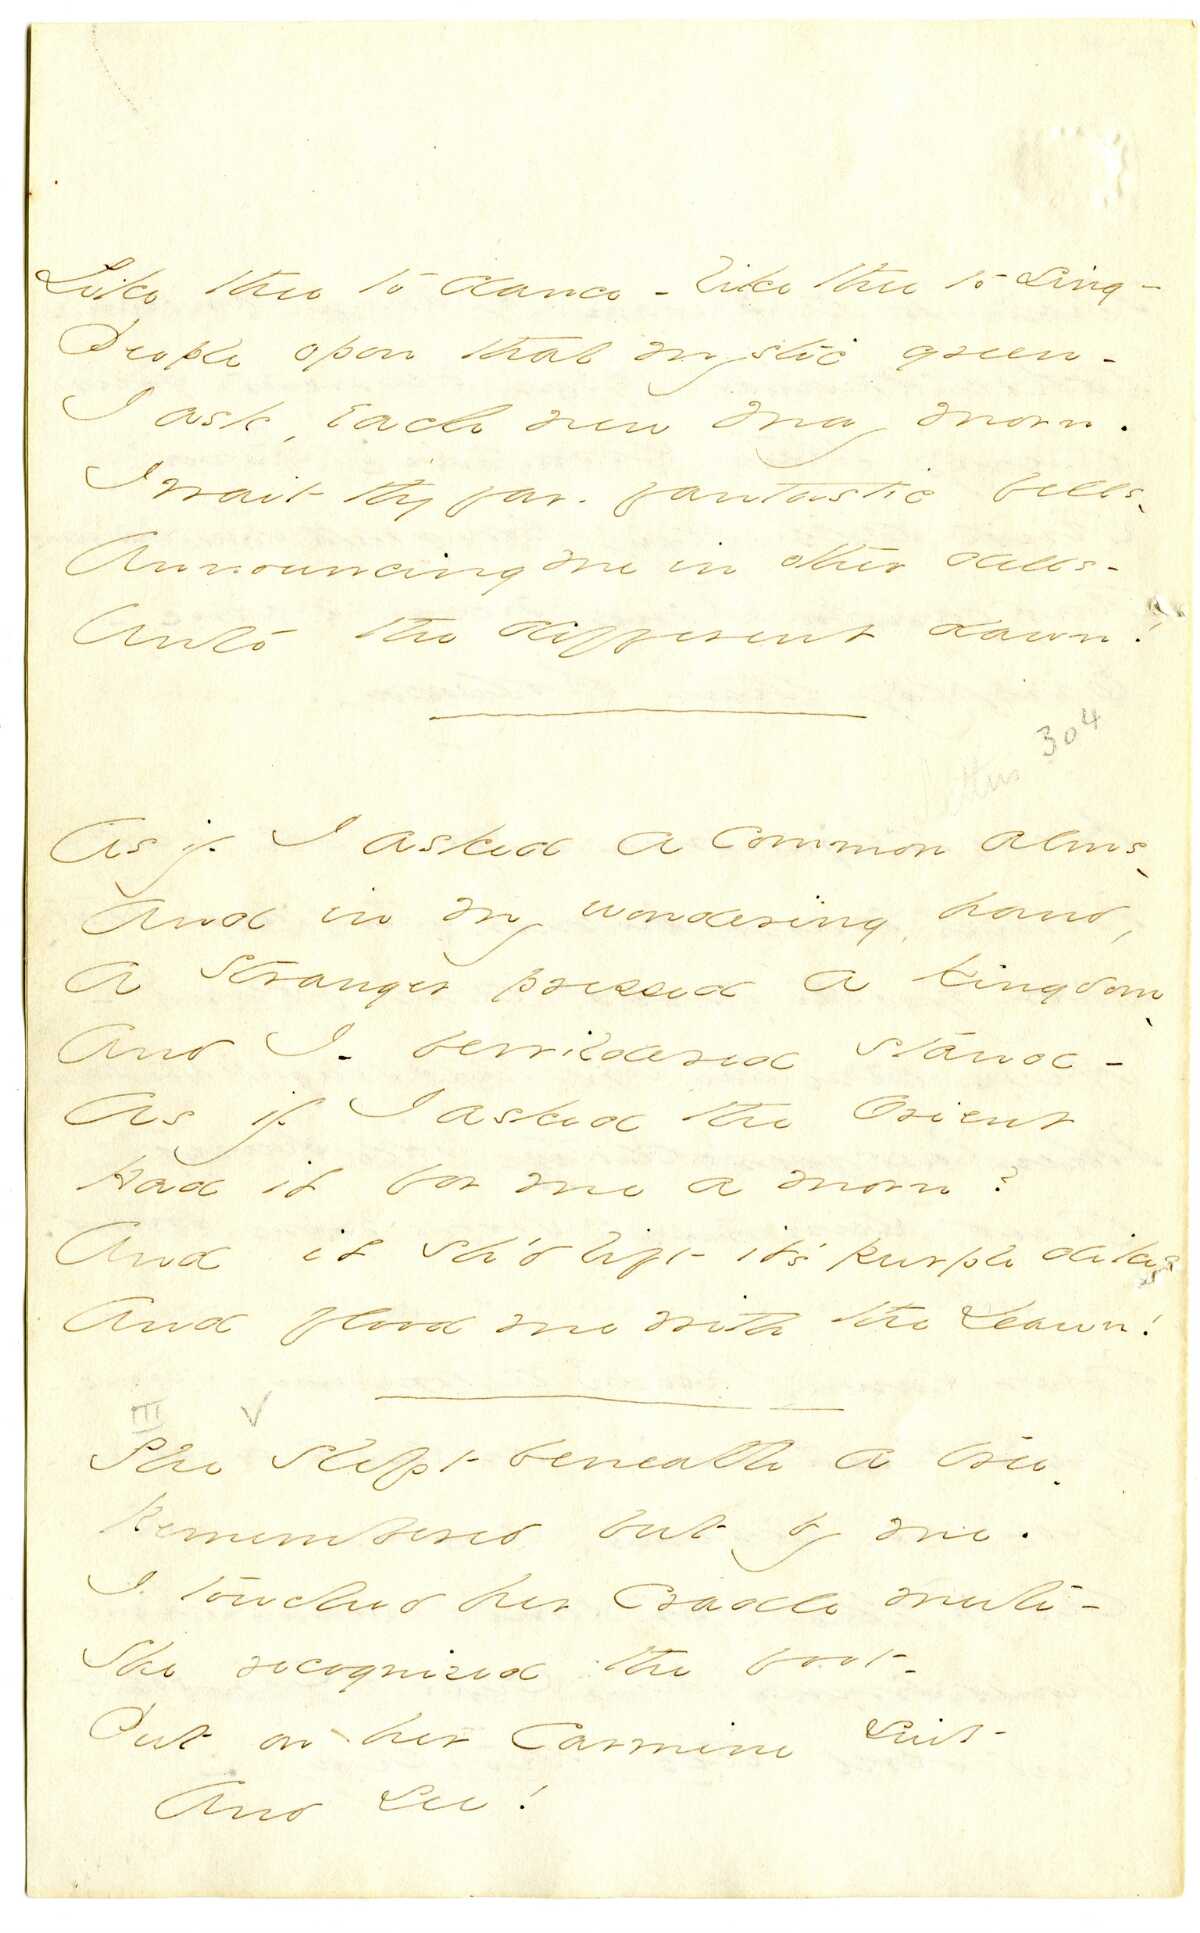 Like thee to dance - like thee to sing -
People upon that mystic green -
I ask, Each new May morn.
I wait thy far - fantastic bells -
Announcing me in other dells -
Unto the different dawn!
Letters 304
As if I asked a common alms -
And in my wondering hand,
A Stranger pressed a kingdom -
And I - bewildered stand -
As if I asked the Orient
Had it for me a morn?
And it sh'd lift it's purple dikes
And flood me with the Dawn!
III ✓
She slept beneath a tree -
Remembered but by me.
I touched her Cradle mute -
She recognized the foot -
Put on her Carmine suit -
And see!